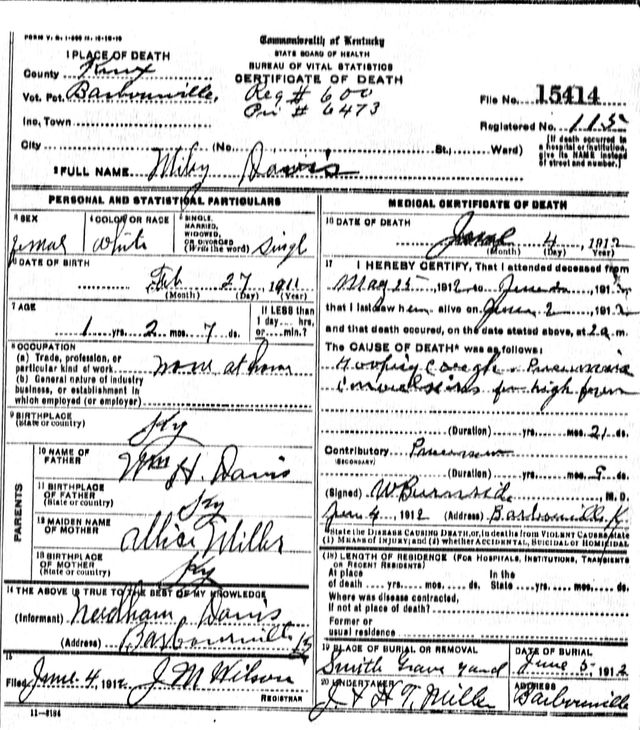 FORM V. S. 1
Commonwealth of Kentucky
STATE BOARD OF HEALTH
BUREAU OF VITAL STATISTICS
CERTIFICATE OF DEATH
1 PLACE OF DEATH
County Knox
Vot. Pct. Barbourville,
Reg # 600
Pri # 6473
File No. 15414
Inc. Town
Registered No. 115
City (No. St.; Ward)
[If death occurred in a hospital or institution, give its NAME instead of street and number.]
2 FULL NAME Davis
PERSONAL AND STATISTICAL PARTICULARS
3 SEX
Femal
4 COLOR OR RACE
White
5 SINGLE, MARRIED, WIDOWED, OR DIVORCED (Write the word) Singl
6 DATE OF BIRTH
Feb 27, 1911
(Month) (Day) (Year)
7 AGE
1 yrs. 2 mos. 7 ds.
If LESS than 1 day...hrs. or...min.?
8 OCCUPATION
(a) Trade, profession, or particular kind of work none at home
(b) General nature of industry business, or establishment in which employed (or employer)
9 BIRTHPLACE
(State or country) Ky
PARENTS
10 NAME OF FATHER Wm H. Davis
11 BIRTHPLACE OF FATHER (State or country) Ky
12 MAIDEN NAME OF MOTHER Miller
13 BIRTHPLACE OF MOTHER (State or country) Ky
14 THE ABOVE IS TRUE TO THE BEST OF MY KNOWLEDGE
(Informant) Needham Davis
(Address) Barbourville
15
Filed June 4, 1912 J M Wilson
REGISTRAR
11-3184
MEDICAL CERTIFICATE OF DEATH
16 DATE OF DEATH
June 4, 1912
(Month) (Day) (Year)
17 I HEREBY CERTIFY, That I attended deceased from
May 25, 1912 to June, 1912
that I last saw her alive on June 2, 1912
and that death occured, on the date stated above, at 2 a.m.
The CAUSE OF DEATH* was as follows:
Hooping Cough & Pneumonia
Convulsions for high fever
(Duration) yrs. mos. 21 ds.
Contributory
(SECONDARY)
(Duration) yrs. mos. 9 ds.
(Signed) W Burnside, M. D.
June 4, 1912 (Address) Barbourville, Ky
*State the DISEASE CAUSING DEATH, or, in deaths from VIOLENT CAUSES state
(1) MEANS OF INJURY; and (2) whether ACCIDENTAL, SUICIDAL or HOMICIDAL
(18) LENGTH OF RESIDENCE (FOR HOSPITALS, INSTITUTIONS, TRANSIENTS OR RECENT RESIDENTS)
At place of death yrs. mos. ds. In the State yrs. mos. ds.
Where was disease contracted,
if not at place of death?
Former or
usual residence
19 PLACE OF BURIAL OR REMOVAL
Smith Grave yard
DATE OF BURIAL
June 5, 1912
20 UNDERTAKER
J & H T. Miller
ADDRESS
Barbourville